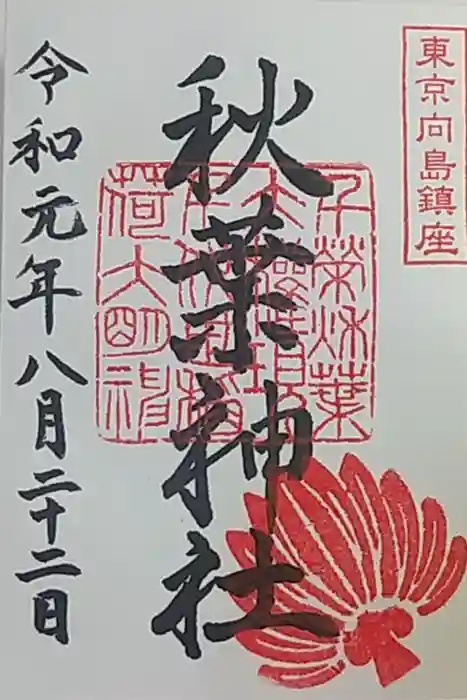 東京向島鎮座
秋葉神社
令和元年八月二十二日
荷大明神